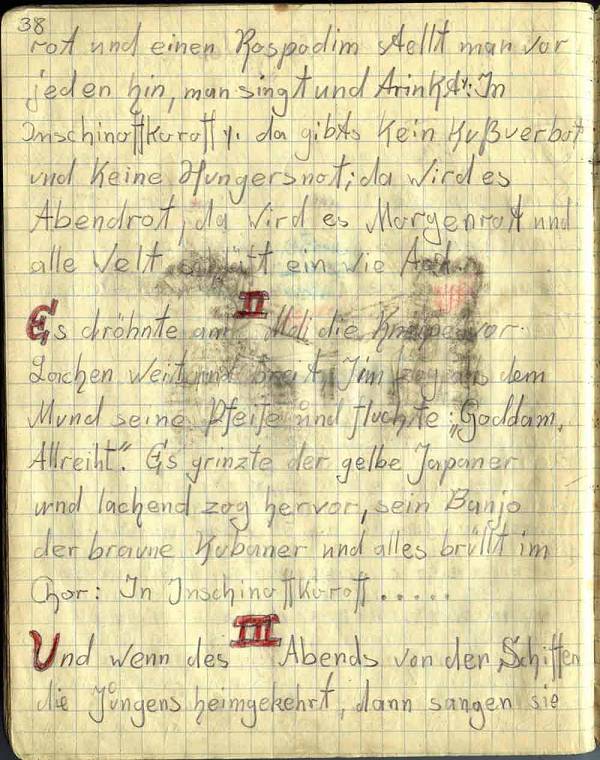 38
rot und einen Rospodim stellt man vor
jeden hin, man singt und trinkt: In
Inschinottkarott, da gibts kein Kußverbot
und keine Hungersnot; da wird es
Abendrot, da wird es Morgenrot und
alle Welt ein wie
II
Es dröhnte am die Kneipe vor
Lachen weit und breit, Jim zog aus dem
Mund seine Pfeife und fluchte: „Goddam,
Allreiht". Es grinzte der gelbe Japaner
und lachend zog hervor, sein Banjo
der braune Kubaner und alles brüllt im
Chor: In Inschinottkarott.....
III
Und wenn des Abends von den Schiffen
die Jungens heimgekehrt, dann sangen sie